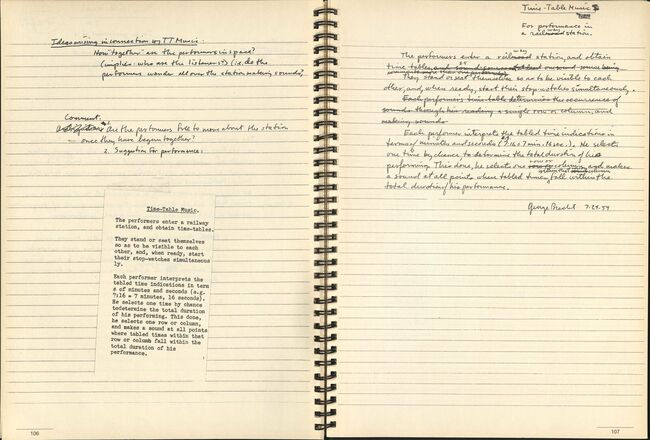 Ideas arising in connection w/ TT Music:
How "together" are the performers in space?
(implies - who are the listeners?) (i.e. do the
performers wander all over the station making sounds)
Comment:
1. Are the performers free to move about the station
once they have begun together?
2. Suggestion for performance:
Time-Table Music.
The performers enter a railway
station, and obtain time-tables.
They stand or seat themselves
so as to be visible to each
other, and, when ready, start
their stop-watches simultaneous
ly.
Each performer interprets the
tabled time indications in term
s of minutes and seconds (e.g.
7:16 = 7 minutes, 16 seconds).
He selects one time by chance
todetermine the total duration
of his performing. This done,
he selects one row or column,
and makes a sound at all points
where tabled times within that
row or column fall within the
total duration of his
performance.
106
Time-Table Music
For performance in
a railroad station.
The performers enter a railway station, and obtain
time tables, and
They stand or seat themselves so as to be visible to each
other, and, when ready, start their stop-watches simultaneously.
Each performer's time-table determines the occurrence of
sounds through his reading a single row or column, and
making sounds
Each performer interprets the tabled time indications in
terms of minutes and seconds (7:16 = 7 min. 16 sec.). He selects
one time by chance, to determine the total duration of his
performing. This done, he selects one row or column, and makes
a sound at all points where tabled times within that column fall within the
total duration of his performance.
George Brecht 7.24.59
107